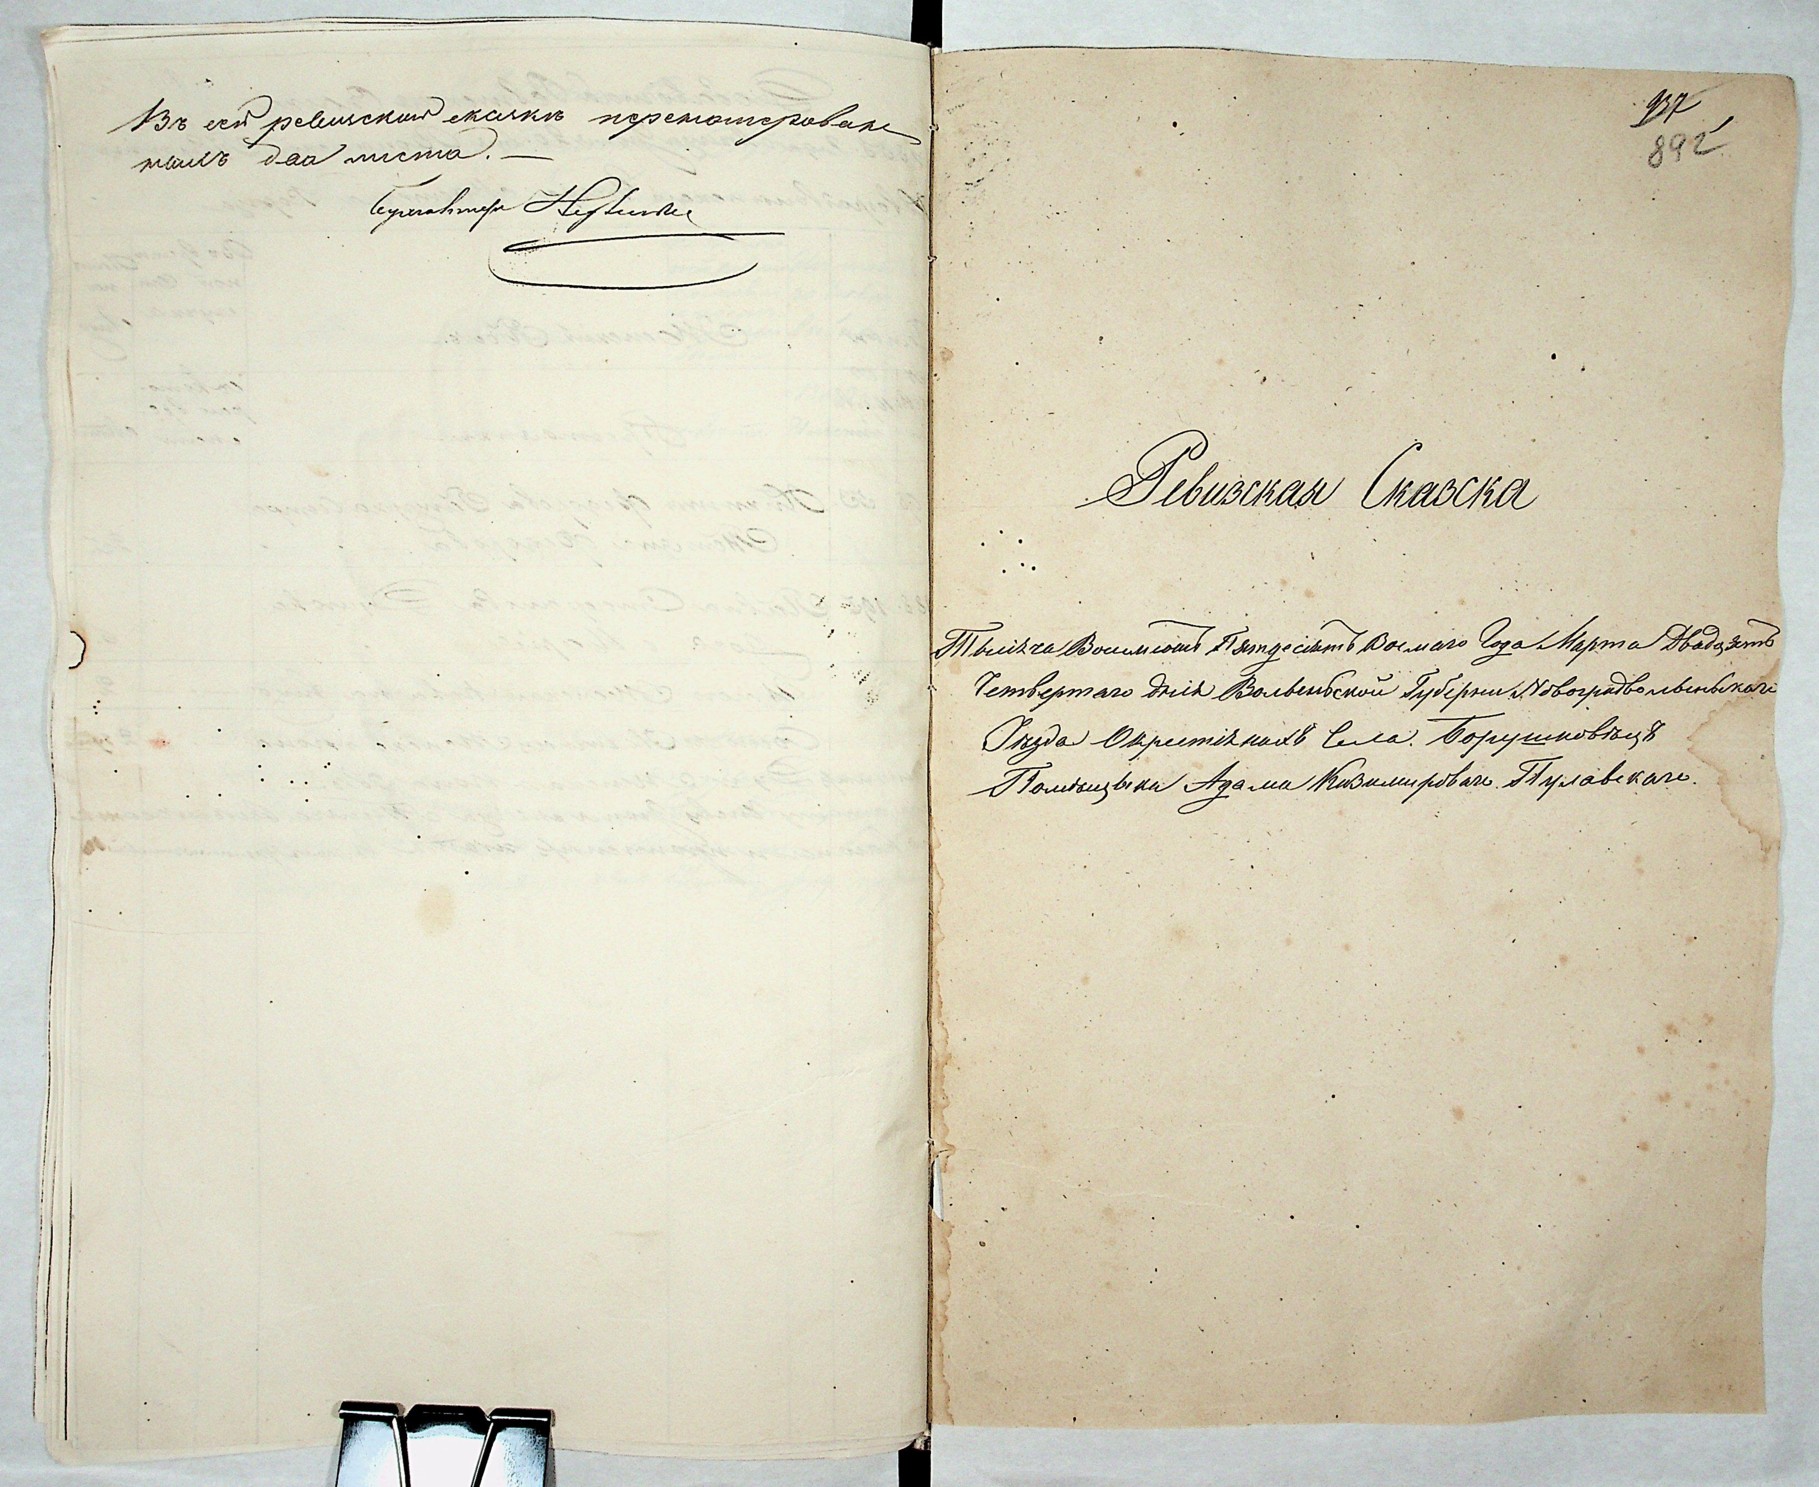 Въ сей ревизской сказкѣ перенумеровано
два листа. —
Бухгалтеръ
937
892
Ревизская Сказска
Тысяча Восемсотъ Пятдесятъ Восмаго Года Марта Двадцятъ
Четвертаго дня Волынской Губерни Новоградволыньскаго
Уѣзда Села Борушковѣцъ
Помѣщыка Адама Казимирова Пулавскаго.